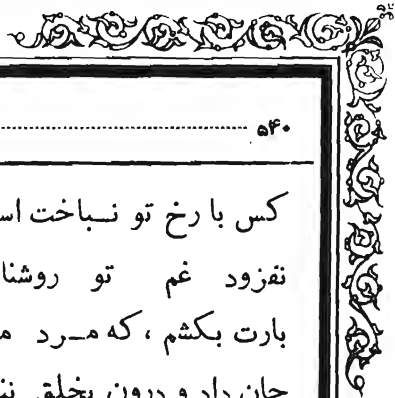 ۵۴۰
کس با رخ تو نباخت
نفزود غم تو
بارت بکشم ، که مرد
جان داد و درون بخلق